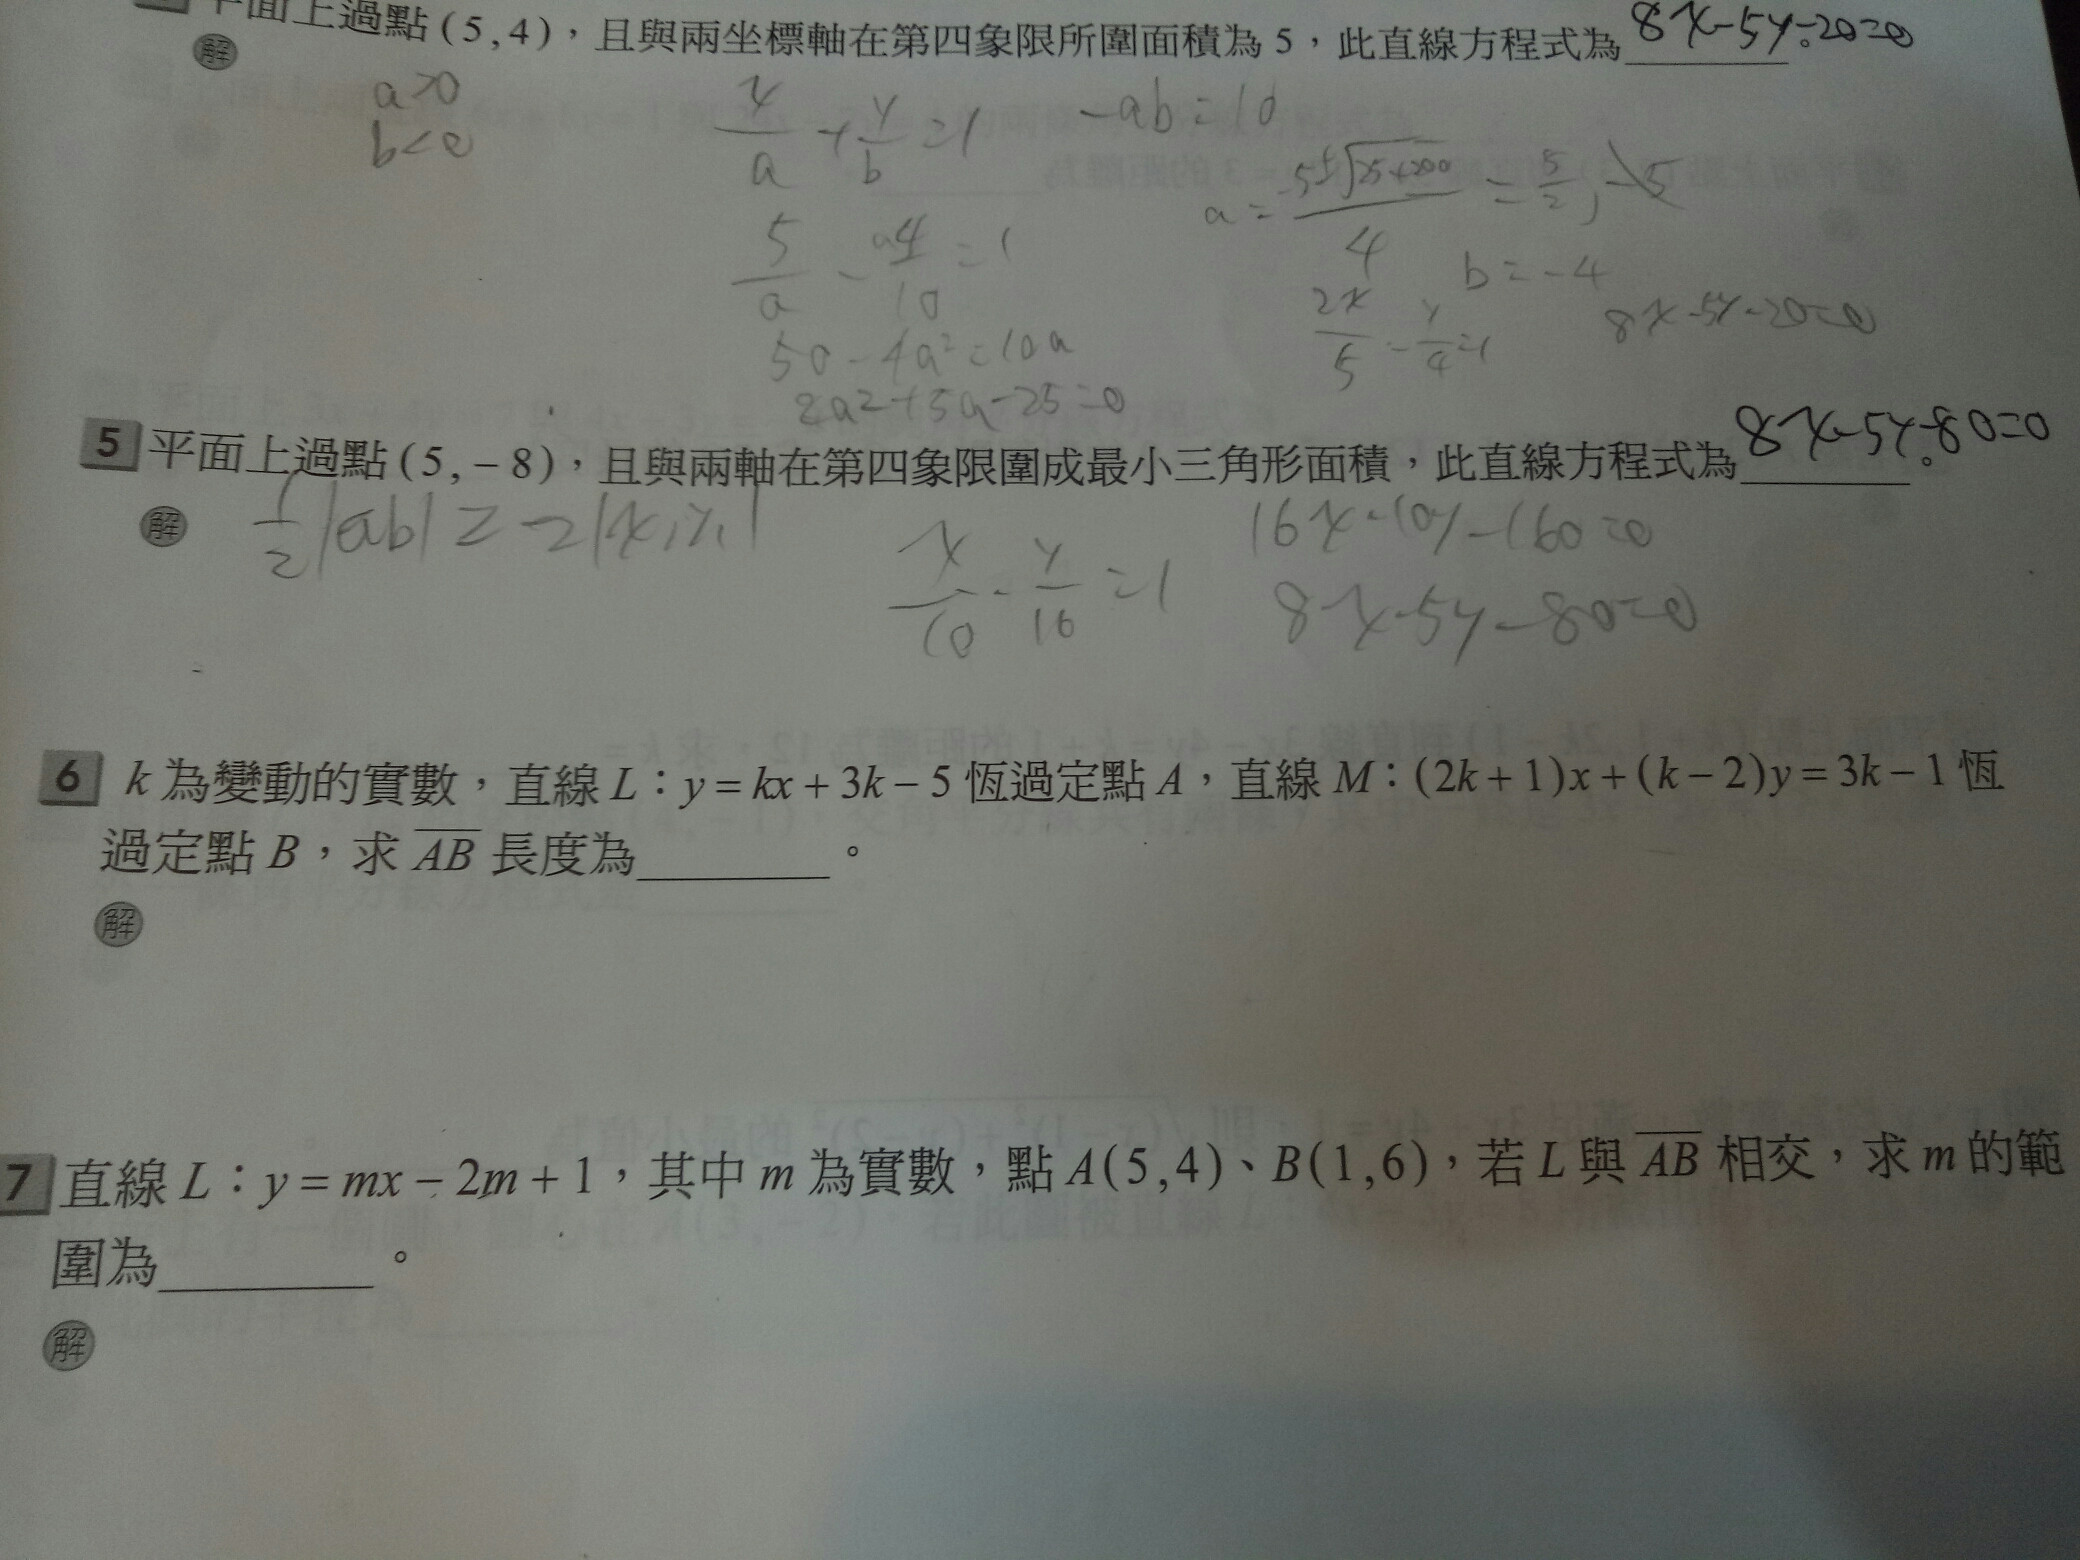 平面上過點(5,4),且與兩坐標軸在第四象限所圍面積為5,此直線方程式為 8x-5y-20=0。
解
a>0
b<0
x/a + y/b = 1
-ab=10
5/a - a4/10 = 1
a = -5±√25+200 / 4 = 5/2, -5
50-4a²=10a
b=-4
2a²+5a-25=0
2x/5 - y/4 = 1
8x-5y-20=0
5 平面上過點(5,-8),且與兩軸在第四象限圍成最小三角形面積,此直線方程式為 8x-5y-80=0。
解
x/10 - y/16 = 1
16x-10y-160=0
8x-5y-80=0
6 k為變動的實數,直線L:y=kx+3k-5恆過定點A,直線M:(2k+1)x+(k-2)y=3k-1恆
過定點B,求AB長度為________。
解
7 直線L:y=mx-2m+1,其中m為實數,點A(5,4)、B(1,6),若L與AB相交,求m的範
圍為________。
解